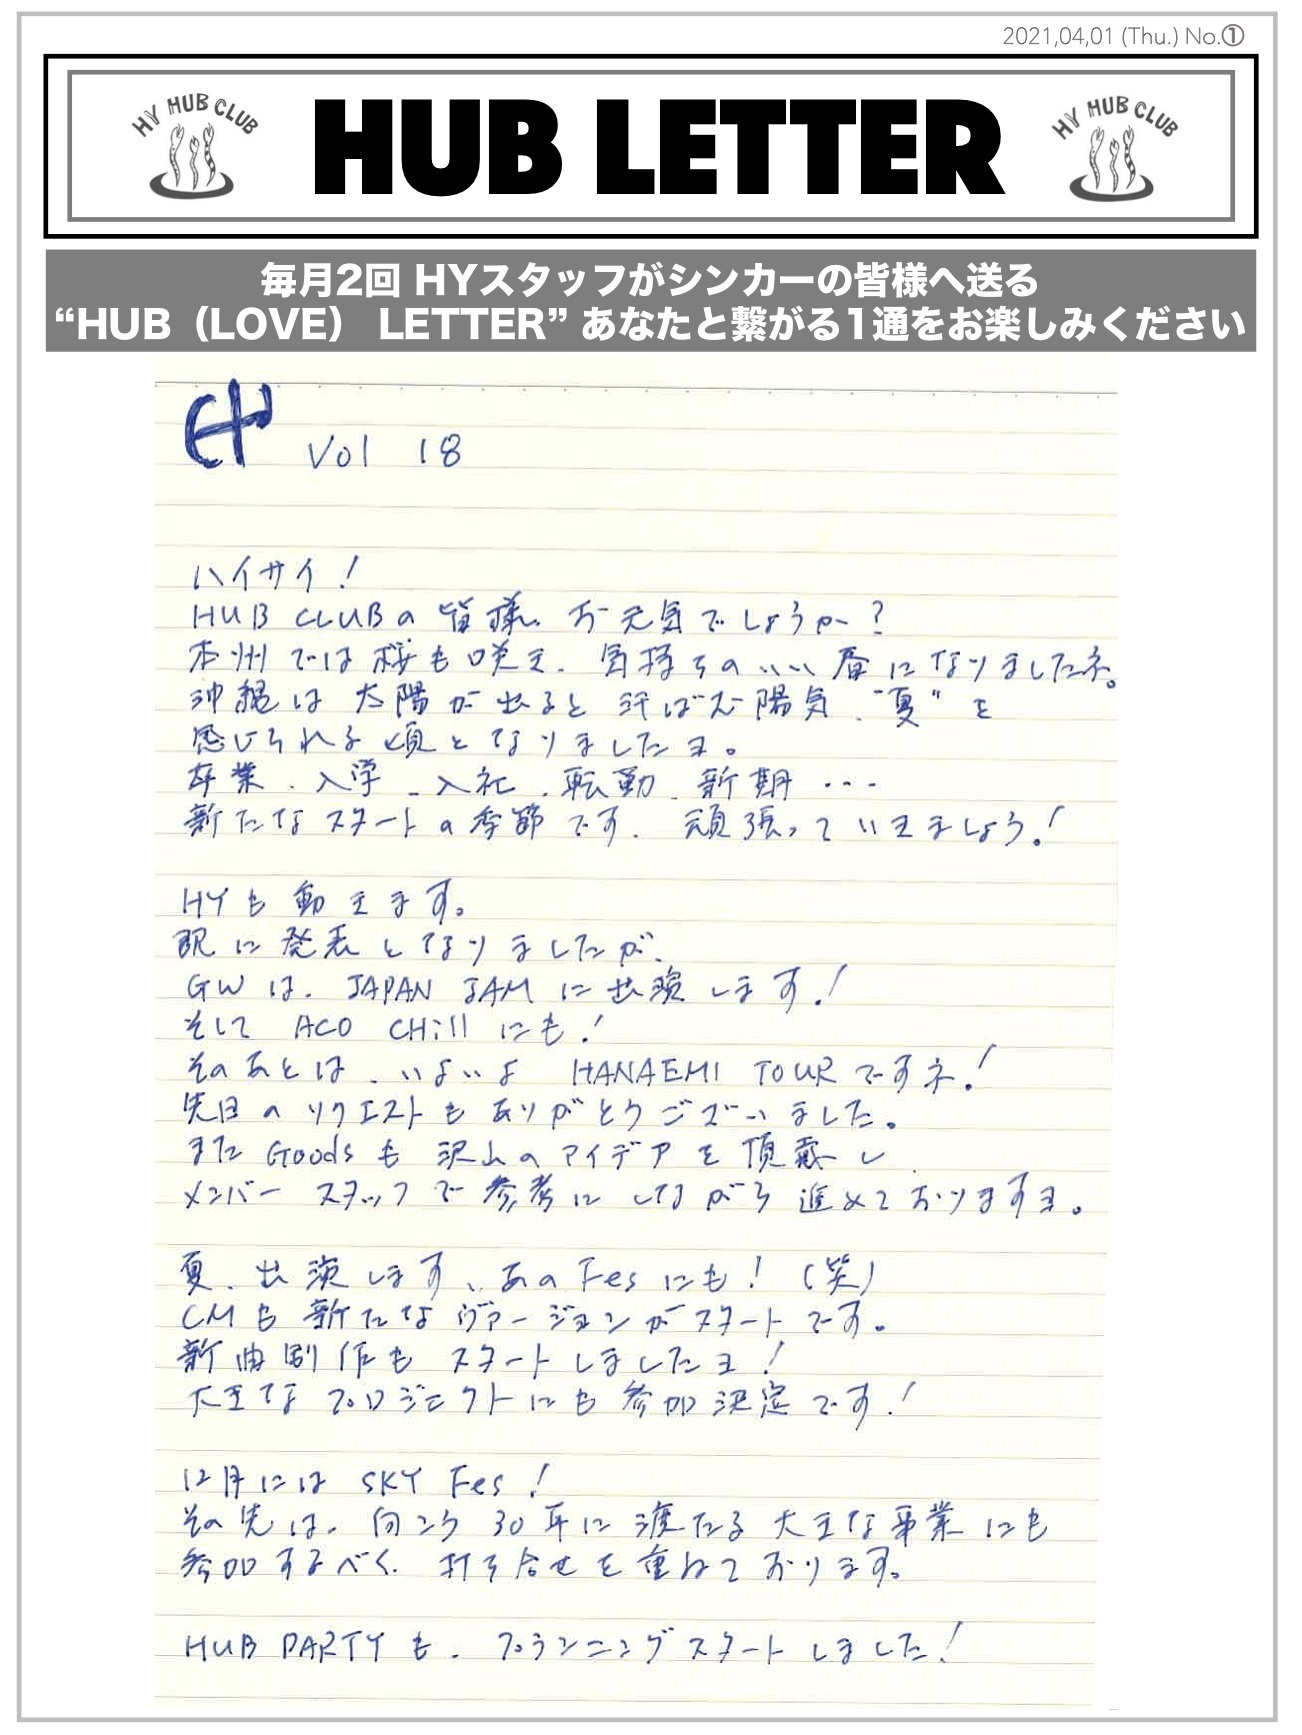 2021,04,01 (Thu.) No.①
HY HUB CLUB
HUB LETTER
HY HUB CLUB
毎月2回 HYスタッフがシンカーの皆様へ送る
“HUB（LOVE） LETTER” あなたと繋がる1通をお楽しみください
HY Vol 18
ハイサイ！
HUB CLUBの皆様、お元気でしょうか？
本州では桜も咲き、気持ちのいい春になりましたネ。
沖縄は太陽が出ると汗ばむ陽気、“夏”を
感じられる頃となりましたヨ。
卒業、入学、入社、転勤、新期…
新たなスタートの季節です、頑張っていきましょう！
HYも動きます。
既に発表となりましたが、
GWは、JAPAN JAMに出演します！
そして ACO CHillにも！
そのあとは、いよいよ HANAEMI TOURですネ！
先日のリクエストもありがとうございました。
また Goodsも沢山のアイデアを頂戴し、
メンバー スタッフで参考にしながら進めておりますヨ。
夏、出演します、あのFesにも！（笑）
CMも新たなヴァージョンがスタートです。
新曲制作もスタートしましたヨ！
大きなプロジェクトにも参加決定です！
12月には SKY Fes！
その先は、向こう30年に渡たる大きな事業にも
参加するべく、打ち合せを重ねております。
HUB PARTYも、プランニングスタートしました！